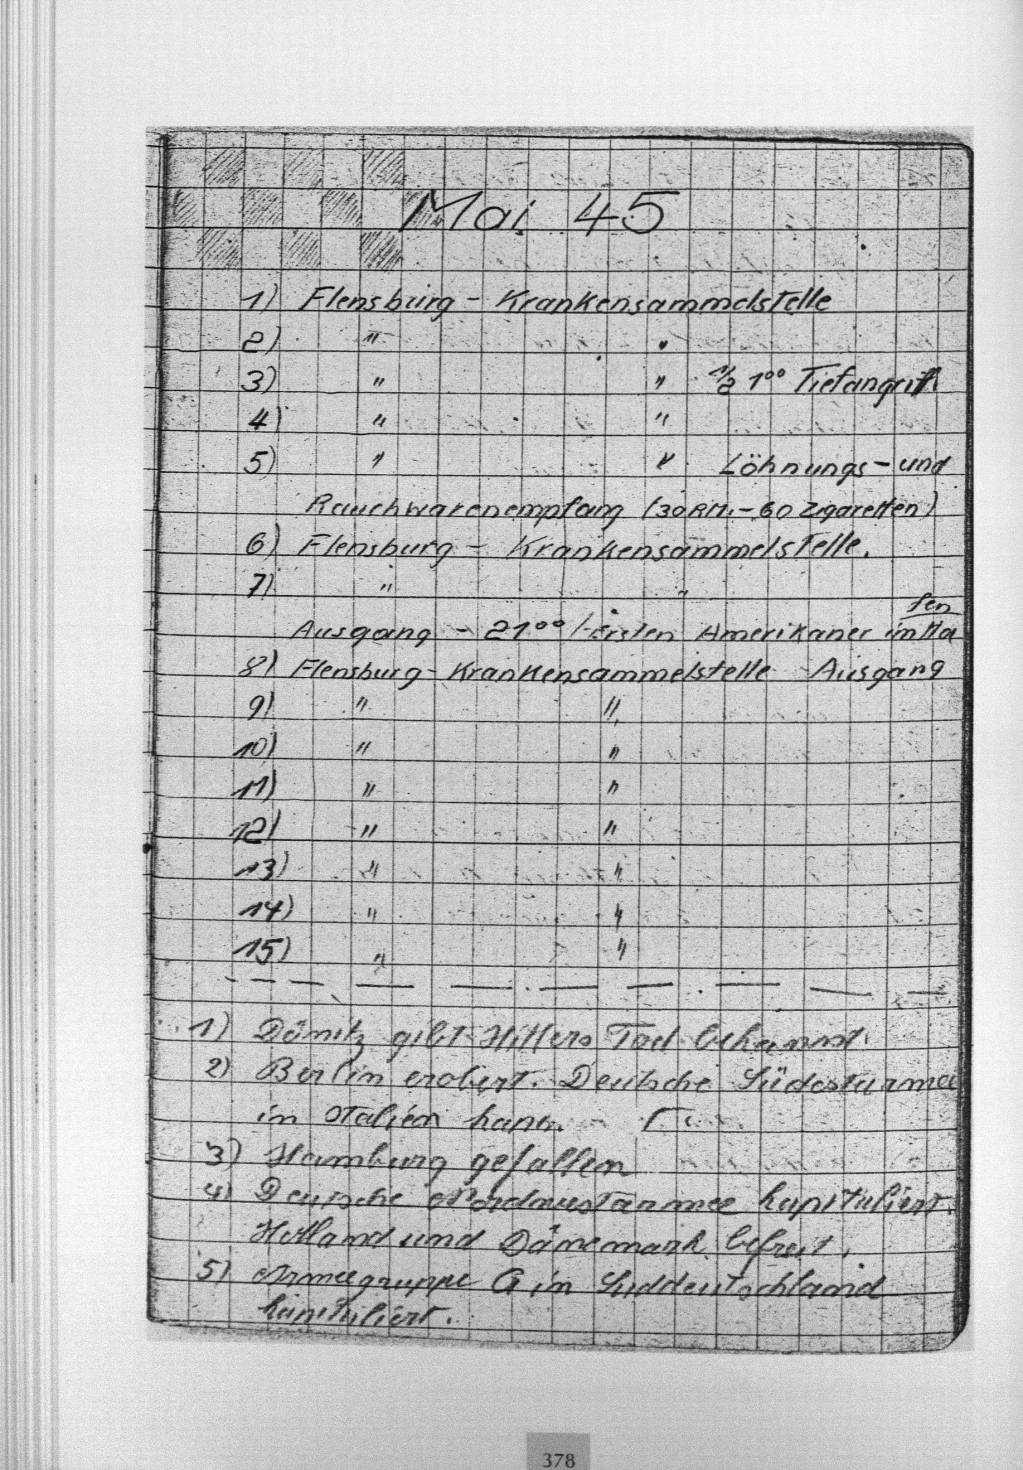 Mai 45
1) Flensburg - Krankensammelstelle
2) " "
3) " " 1/2 1⁰⁰ Tiefangriff
4) " "
5) " " Löhnungs - und
Rauchwarenempfang (30 RM. - 60 Zigaretten)
6) Flensburg - Krankensammelstelle.
7) " "
fen
Ausgang - 21⁰⁰ / Ersten Amerikaner im Ha
8) Flensburg - Krankensammelstelle Ausgang
9) " "
10) " "
11) " "
12) " "
13) " "
14) " "
15) " "
1) Dönitz gibt Hitlers Tod bekannt.
2) Berlin erobert. Deutsche Südostarmee
in Italien kapit.
3) Hamburg gefallen
4) Deutsche Nordwestarmee kapituliert.
Holland und Dänemark befreit.
5) Armeegruppe G in Süddeutschland
kapituliert.
378